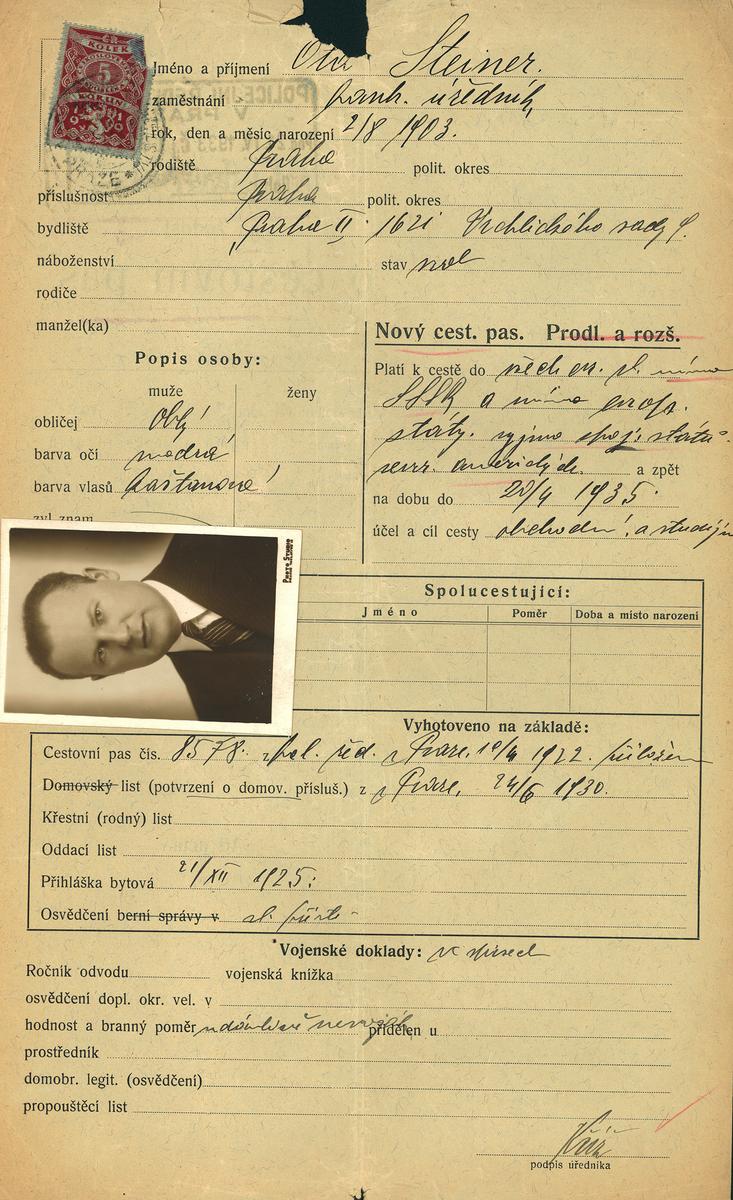 KOLEK
5
KORUN
Jméno a příjmení Ota Steiner.
zaměstnání bank. úředník
rok, den a měsíc narození 2/8 1903.
rodiště Praha polit. okres
příslušnost Praha polit. okres
bydliště Praha II. 1621 Vrchlického sady
náboženství stav svob
rodiče
manžel(ka)
Nový cest. pas. Prodl. a rozš.
Popis osoby:
muže ženy
obličej oblý
barva očí modrá
barva vlasů kaštanové
zvl znam
Platí k cestě do všech ev. st. mimo
SSSR a mimo evrop.
státy. vyjma spoj. států
sever. amerických. a zpět
na dobu do 20/4 1935.
účel a cíl cesty obchodní, a studijní
PHOTO STUDIO
Spolucestující:
Jméno Poměr Doba a místo narození
Vyhotoveno na základě:
Cestovní pas čís. 8578. pol. řed. v Praze, 19/4 1922. přiložen
Domovský list (potvrzení o domov. přísluš.) z v Praze, 24/6 1930.
Křestní (rodný) list
Oddací list
Přihláška bytová 21/XII 1925.
Osvědčení berní správy v
Vojenské doklady: v spisech
Ročník odvodu vojenská knížka
osvědčení dopl. okr. vel. v
hodnost a branný poměr přidělen u
prostředník
domobr. legit. (osvědčení)
propouštěcí list
Kříž
podpis úředníka